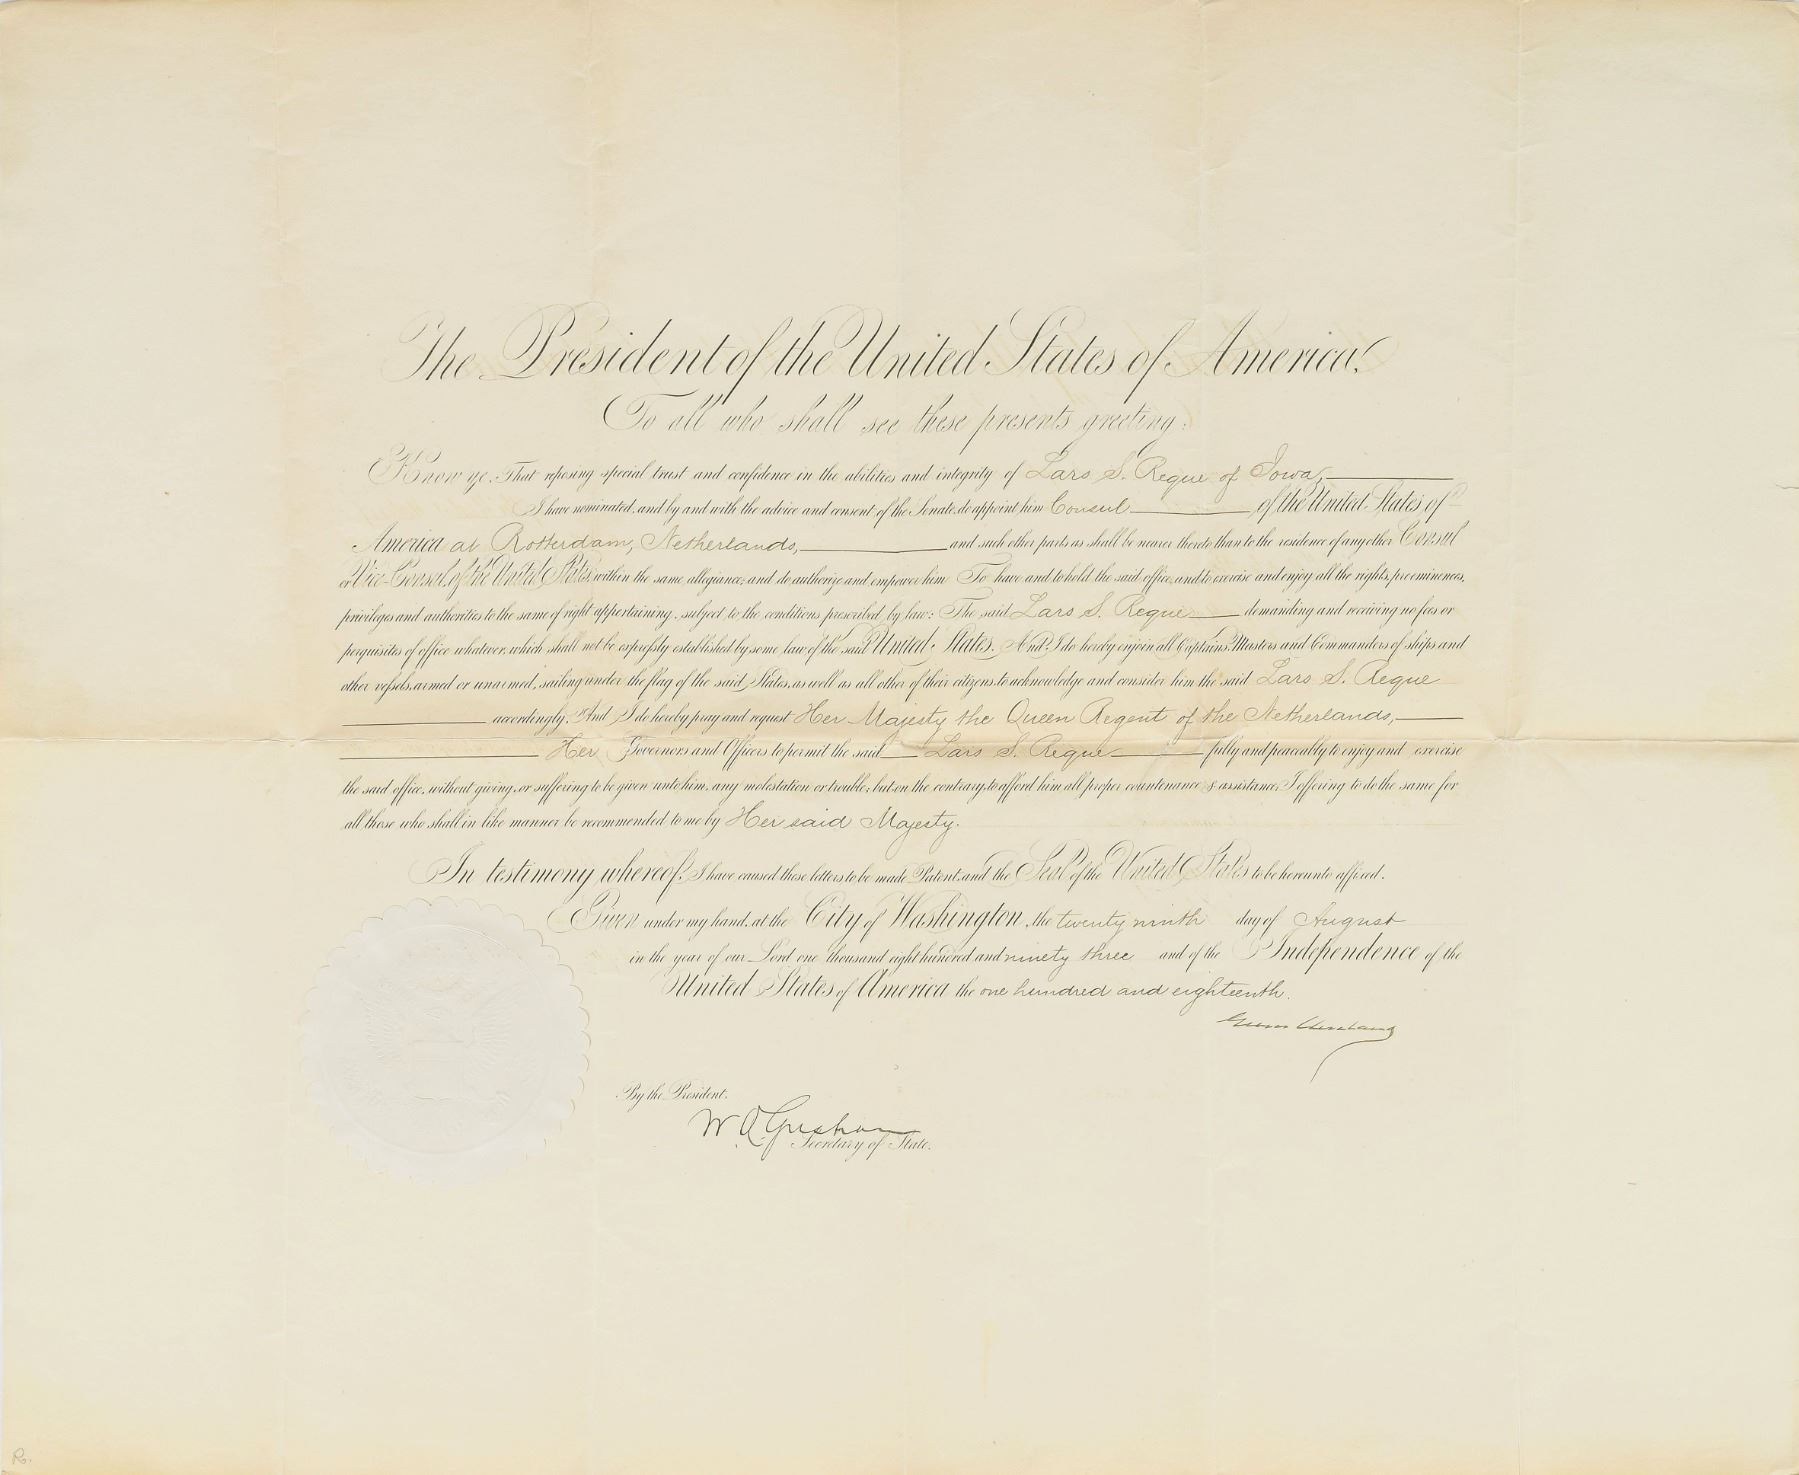 The President of the United States of America.
To all who shall see these presents greeting:
Know ye. That reposing special trust and confidence in the abilities and integrity of Lars S. Reque of Iowa,
I have nominated, and by and with the advice and consent of the Senate, do appoint him Consul of the United States of
America at Rotterdam, Netherlands, and such other parts as shall be nearer thereto than to the residence of any other Consul
or Vice-Consul of the United States within the same allegiance; and do authorize and empower him To have and to hold the said office, and to exercise and enjoy all the rights, preeminences,
privileges and authorities to the same of right appertaining, subject to the conditions prescribed by law: The said Lars S. Reque demanding and receiving no fees or
perquisites of office whatever, which shall not be expressly established by some law of the said United States. And I do hereby enjoin all Captains, Masters and Commanders of ships and
other vessels, armed or unarmed, sailing under the flag of the said States, as well as all other of their citizens, to acknowledge and consider him the said Lars S. Reque
accordingly. And I do hereby pray and request Her Majesty the Queen Regent of the Netherlands,
Her Governors and Officers to permit the said Lars S. Reque fully and peaceably to enjoy and exercise
the said office, without giving, or suffering to be given unto him, any molestation or trouble; but on the contrary, to afford him all proper countenance & assistance; I offering to do the same for
all those who shall in like manner be recommended to me by Her said Majesty.
In testimony whereof, I have caused these letters to be made Patent, and the Seal of the United States to be hereunto affixed.
Given under my hand, at the City of Washington, the twenty ninth day of August
in the year of our Lord one thousand eight hundred and ninety three and of the Independence of the
United States of America the one hundred and eighteenth.
Grover Cleveland
By the President:
W Q Gresham
Secretary of State.
R.